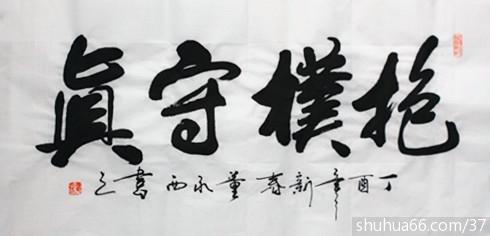 抱樸守眞
丁酉年新春董永西書之
shuhua66.com/37